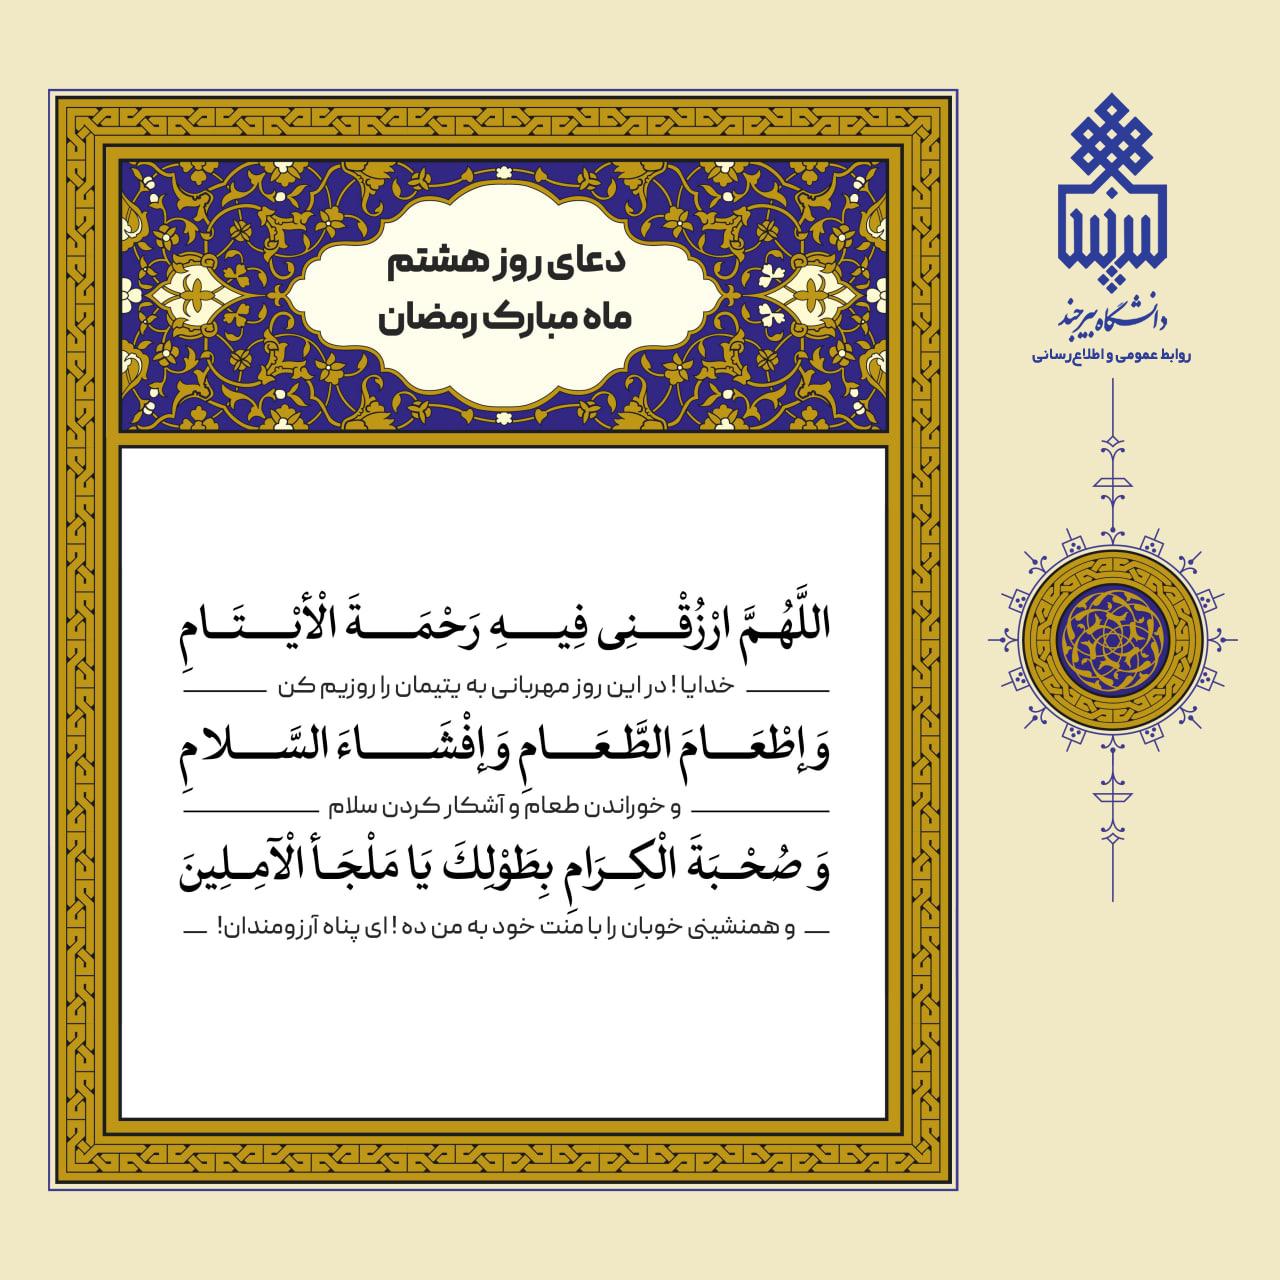 دعای روز هشتم
ماه مبارک رمضان
اللَّهُمَّ ارْزُقْنِی فِیهِ رَحْمَةَ الْأَیْتَامِ
خدایا ! در این روز مهربانی به یتیمان را روزیم کن
وَ إِطْعَامَ الطَّعَامِ وَ إِفْشَاءَ السَّلامِ
و خوراندن طعام و آشکار کردن سلام
وَ صُحْبَةَ الْكِرَامِ بِطَوْلِكَ يَا مَلْجَأَ الْآمِلِينَ
و همنشینی خوبان را با منت خود به من ده ! ای پناه آرزومندان!
دانشگاه بیرجند
روابط عمومی و اطلاع‌رسانی